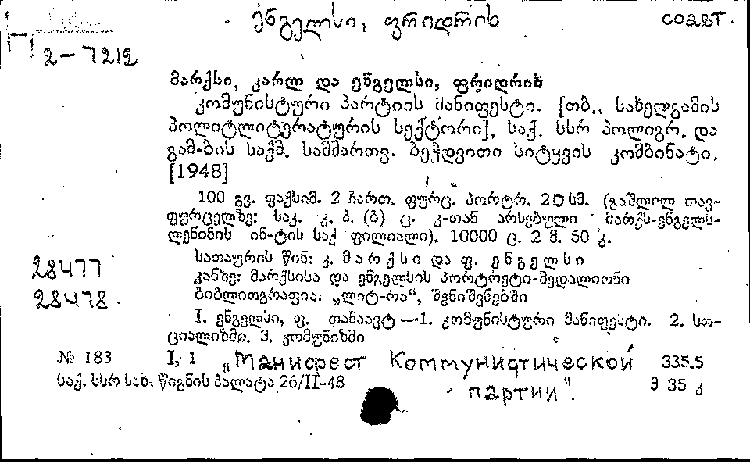 ენგელსი, ფრიდრიხ
соавт.
2-7212
მარქსი, კარლ და ენგელსი, ფრიდრიხ
კომუნისტური პარტიის მანიფესტი. [თბ., სახელგამის
პოლიტლიტერატურის სექტორი], საქ. სსრ პოლიგრ. და
გამ-ბის საქმ. სამმართვ. ბეჭდვითი სიტყვის კომბინატი,
[1948]
100 გვ. ფაქსიმ. 2 ჩართ. ფურც. პორტრ. 20 სმ. (გაშლილ თავ-
ფურცელზე: საკ. კ. პ. (ბ) ც. კ-თან არსებული მარქს-ენგელს-
ლენინის ინ-ტის საქ ფილიალი). 10000 ც. 2 მ. 50 კ.
სათაურის წინ: კ. მარქსი და ფ. ენგელსი
28477
კანზე: მარქსისა და ენგელსის პორტრეტი-მედალიონი
28478
ბიბლიოგრაფია: „ლიტ-რა“, შენიშვნებში
I. ენგელსი, ფ. თანაავტ — 1. კომუნისტური მანიფესტი. 2. სო-
ციალიზმი. 3. კომუნიზმი
№ 183 I, 1 „Манифест Коммунистической 335.5
საქ. სსრ სახ. წიგნის პალატა 26/II-48 партии". მ 35 კ